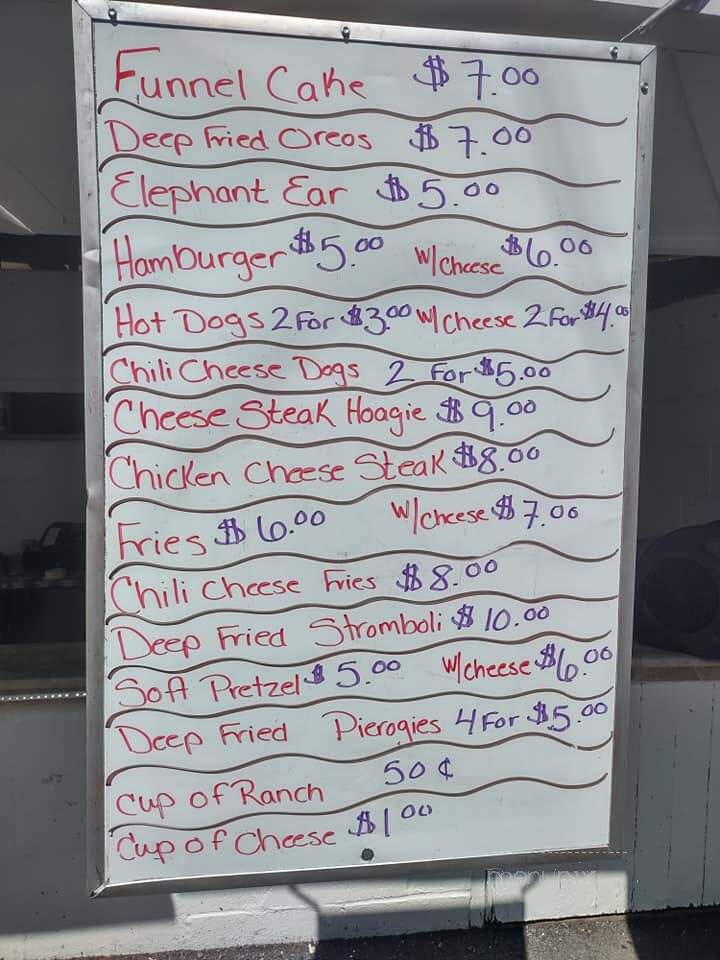 Funnel Cake $7.00
Deep Fried Oreos $7.00
Elephant Ear $5.00
Hamburger $5.00 w/cheese $6.00
Hot Dogs 2 For $3.00 w/cheese 2 For $4.00
Chili Cheese Dogs 2 For $5.00
Cheese Steak Hoagie $9.00
Chicken Cheese Steak $8.00
Fries $6.00 w/cheese $7.00
Chili Cheese Fries $8.00
Deep Fried Stromboli $10.00
Soft Pretzel $5.00 w/cheese $6.00
Deep Fried Pierogies 4 For $5.00
Cup of Ranch 50¢
Cup of Cheese $1.00
menupix